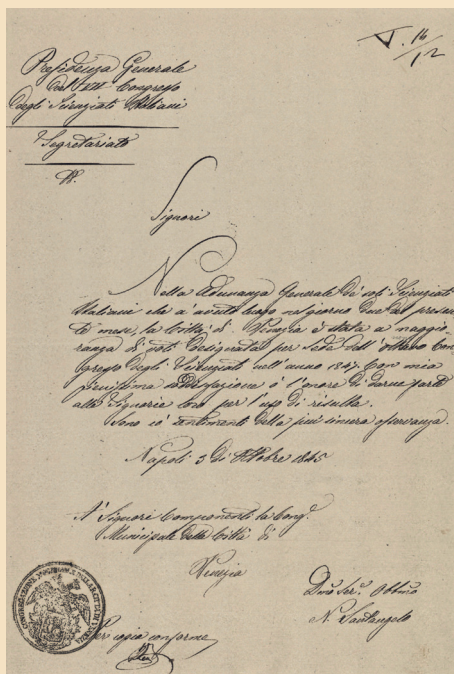 V. 14/12
Presidenza Generale
del VII Congresso
degli Scienziati Italiani
Segretariato
N.
Signori
Nella Adunanza Generale de' soli Scienziati
Italiani che à avuto luogo nel giorno due del presen
te mese, la Città di Venezia è stata a maggio
ranza di voti designata per sede dell'ottavo Con
gresso degli Scienziati nell'anno 1847. Con mia
pienissima soddisfazione ò l'onore di darne parte
alle Signorie loro per l'uso di risulta.
Sono co' sentimenti della più sincera osservanza.
Napoli 5 di Ottobre 1845
A' Signori Componenti la Cong.e
Municipale della Città di
Venezia
Dmo Ser. Obbmo
N. Santangelo
Per copia conforme